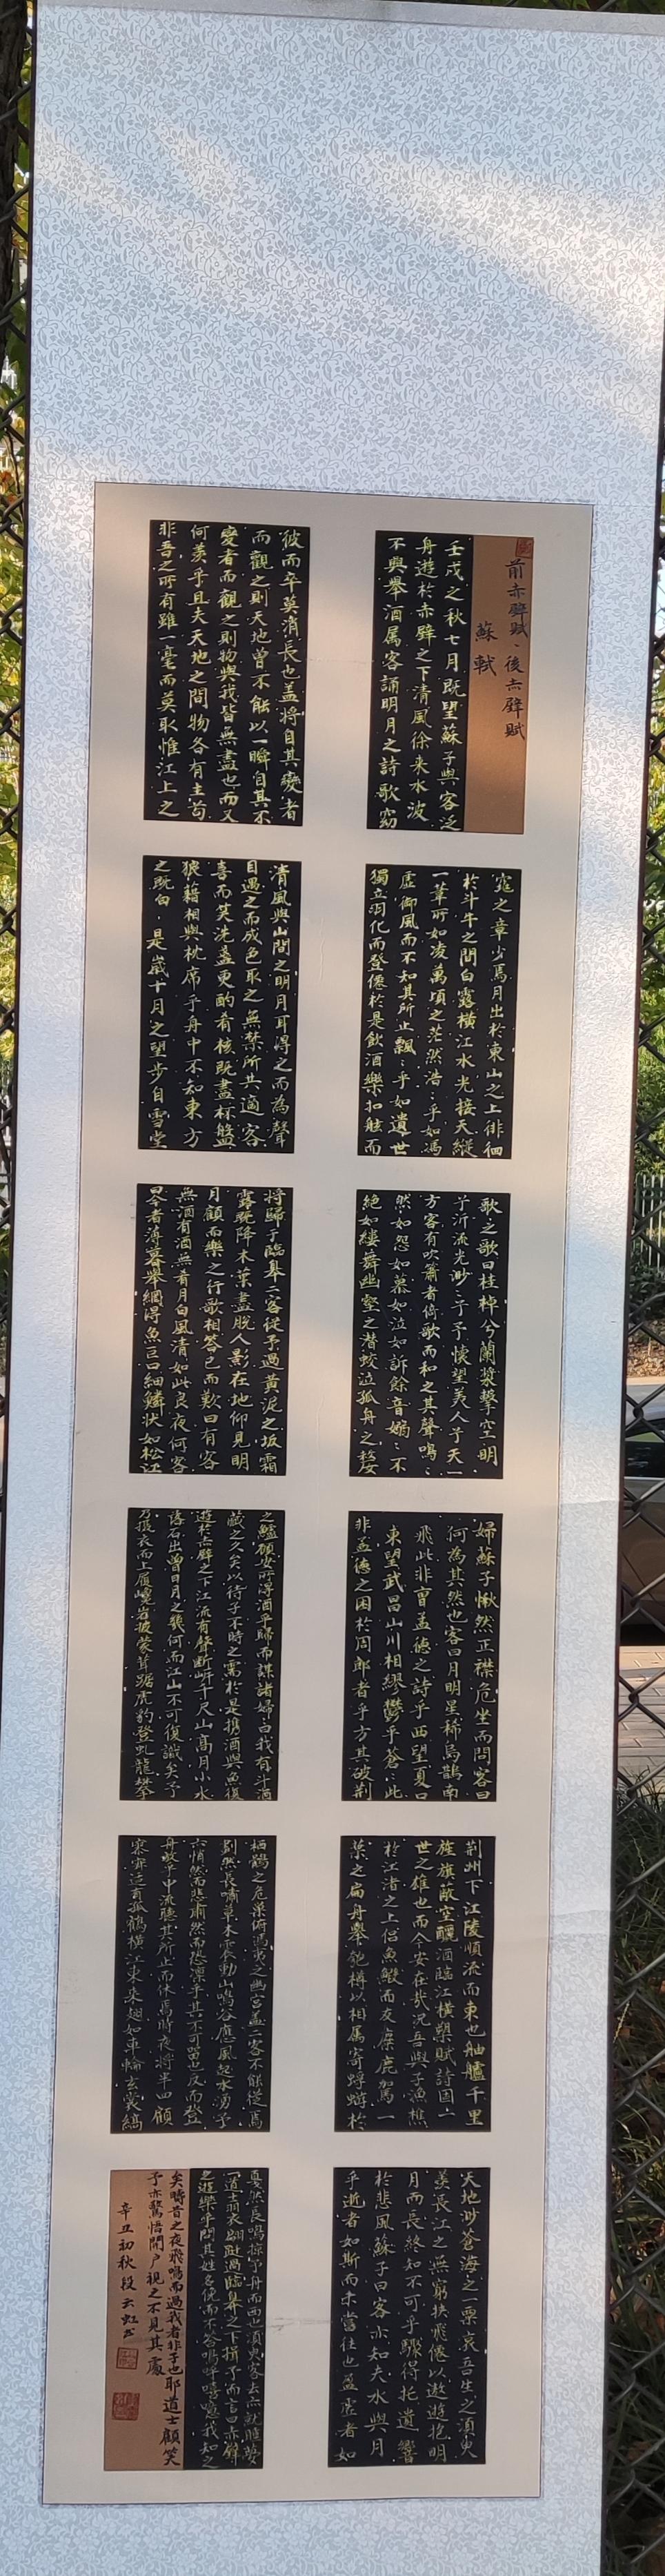 前赤壁賦、後赤壁賦
蘇軾
壬戌之秋七月既望蘇子與客泛
舟遊於赤壁之下清風徐来水波
不興舉酒属客誦明月之詩歌窈
窕之章少焉月出於東山之上徘徊
於斗牛之間白露橫江水光接天縱
一葦所如凌萬頃之茫然浩浩乎如馮
虛御風而不知其所止飄飄乎如遺世
獨立羽化而登僊於是飲酒樂扣舷而
歌之歌曰桂棹兮蘭槳擊空明
兮泝流光渺渺兮予懷望美人兮天一
方客有吹簫者倚歌而和之其聲嗚嗚
然如怨如慕如泣如訴餘音嫋嫋不
絕如縷舞幽壑之潛蛟泣孤舟之嫠
婦蘇子愀然正襟危坐而問客曰
何為其然也客曰月明星稀烏鵲南
飛此非曹孟德之詩乎西望夏口
東望武昌山川相繆鬱乎蒼蒼此
非孟德之困於周郎者乎方其破荊
荊州下江陵順流而東也舳艫千里
旌旗蔽空釃酒臨江橫槊賦詩固一
世之雄也而今安在哉況吾與子漁樵
於江渚之上侶魚鰕而友麋鹿駕一
葉之扁舟舉匏樽以相属寄蜉蝣於
天地渺蒼海之一粟哀吾生之須臾
羨長江之無窮挾飛僊以遨遊抱明
月而長終知不可乎驟得托遺響
於悲風蘇子曰客亦知夫水與月
乎逝者如斯而未嘗往也盈虛者如
彼而卒莫消長也盖將自其變者
而觀之則天地曾不能以一瞬自其不
變者而觀之則物與我皆無盡也而又
何羨乎且夫天地之間物各有主苟
非吾之所有雖一毫而莫取惟江上之
清風與山間之明月耳得之而為聲
目遇之而成色取之無禁所共適客
喜而笑洗盞更酌肴核既盡杯盤
狼藉相與枕席乎舟中不知東方
之既白是歲十月之望步自雪堂
將歸于臨皋二客從予過黃泥之坂霜
露既降木葉盡脫人影在地仰見明
月顧而樂之行歌相答已而歎曰有客
無酒有酒無肴月白風清如此良夜何客
曰今者薄暮舉網得魚巨口細鱗狀如松江
之鱸顧安所得酒乎歸而謀諸婦曰我有斗酒
藏之久矣以待子不時之需於是携酒與魚復
遊於赤壁之下江流有聲斷岸千尺山高月小水
落石出曾日月之幾何而江山不可復識矣予
乃摄衣而上履巉岩披蒙茸踞虎豹登虬龍攀
栖鶻之危巢俯馮夷之幽宮盖二客不能從焉
劃然長嘯草木震動山鳴谷應風起水湧予
亦悄然而悲肅然而恐凛乎其不可留也反而登
舟放乎中流聽其所止而休焉時夜將半四顧
寂寥適有孤鶴橫江東來翅如車輪玄裳縞
戛然長鳴掠予舟而西也須臾客去予亦就睡夢
一道士羽衣翩躚過臨皋之下揖予而言曰赤壁
之遊樂乎問其姓名俛而不答嗚呼噫嘻我知之
矣疇昔之夜飛鳴而過我者非子也耶道士顧笑
予亦驚悟開户視之不見其處
辛丑初秋段云虹书